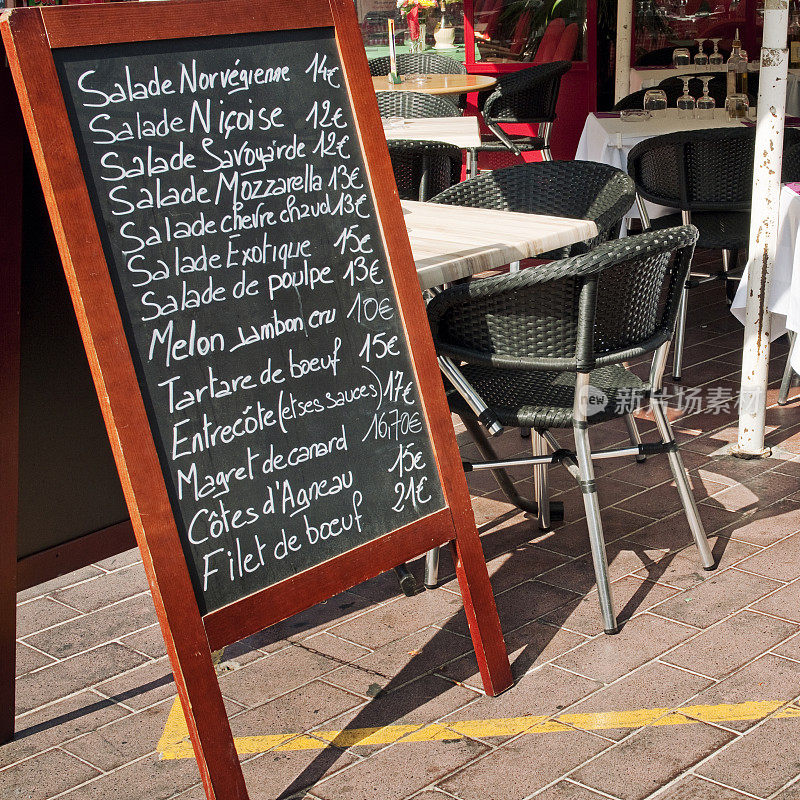 Salade Norvégienne 14€
Salade Niçoise 12€
Salade Savoyarde 12€
Salade Mozzarella 13€
Salade chevre chaud 13€
Salade Exotique 15€
Salade de poulpe 13€
Melon Jambon cru 10€
Tartare de boeuf 15€
Entrecôte (et ses sauces) 17€
Magret de canard 16,70€
Côtes d'Agneau 15€
Filet de boeuf 21€
new 新摄商城